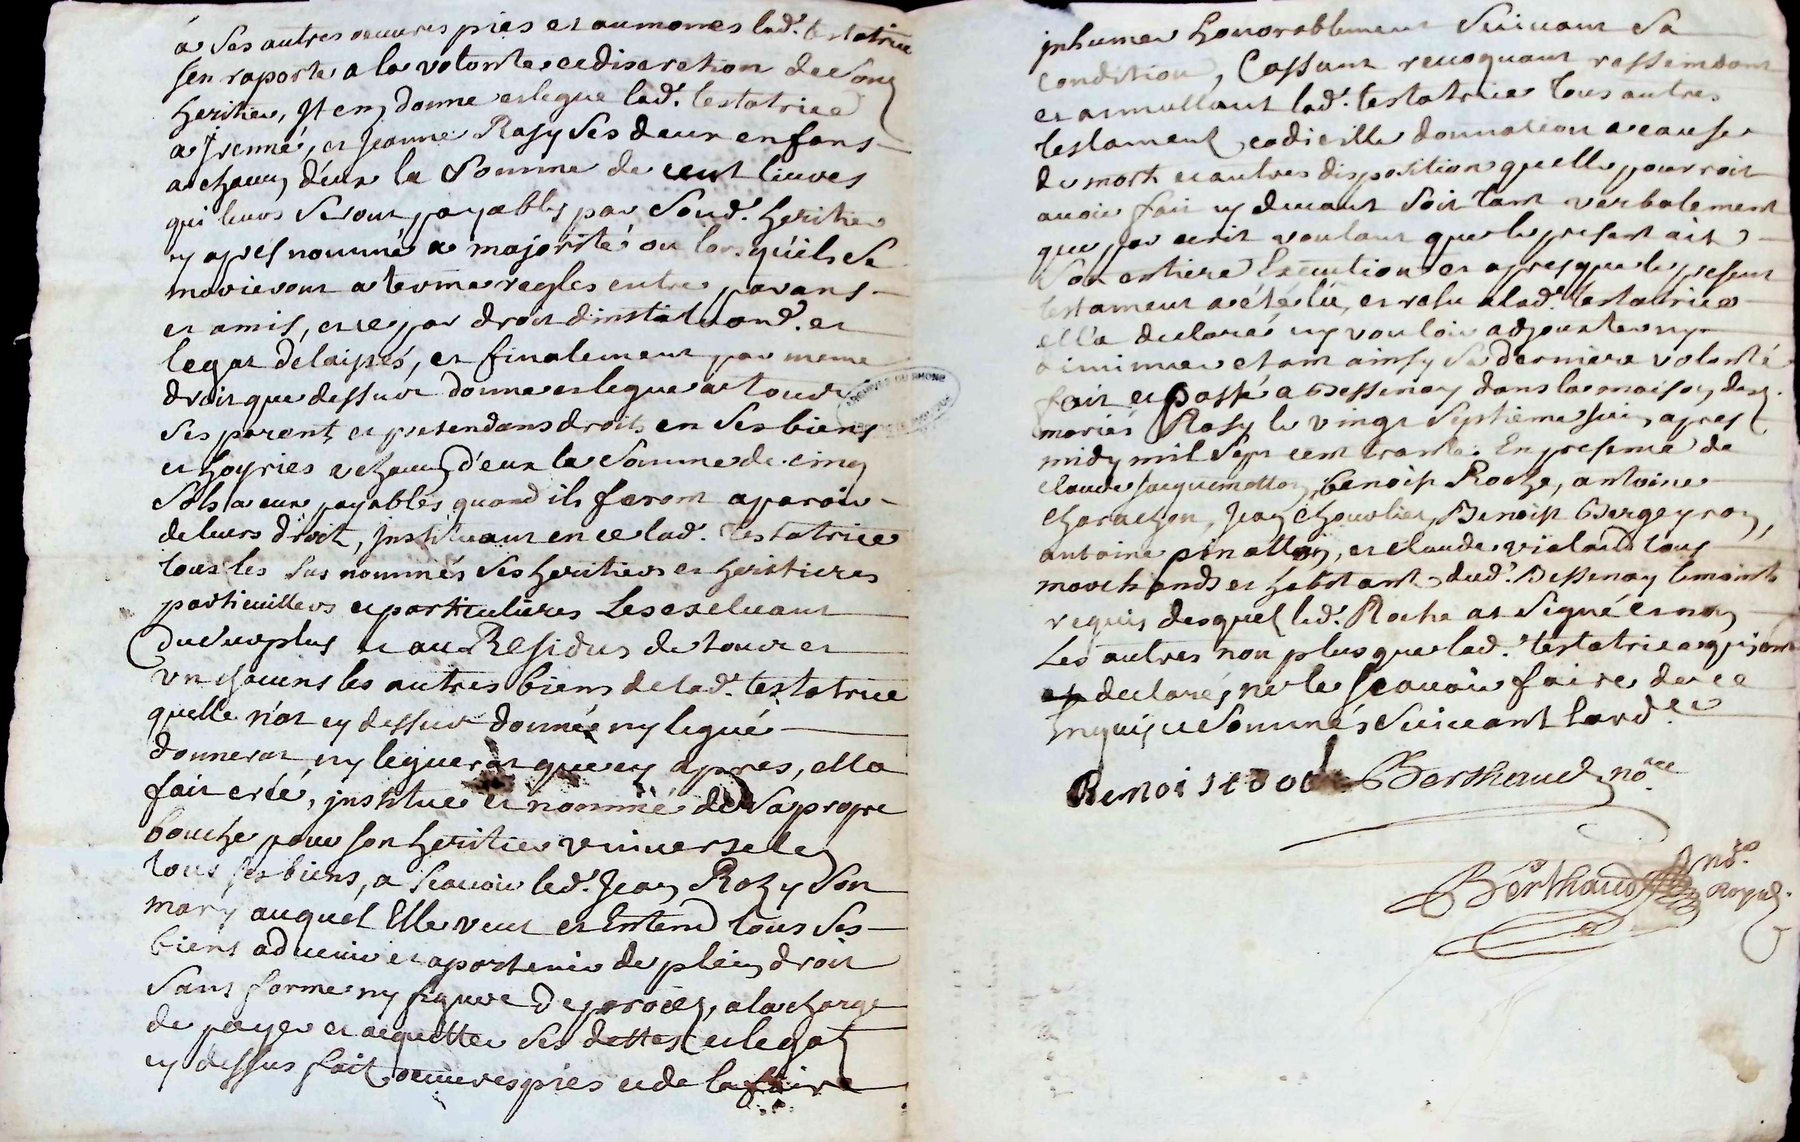 à Ses autres oeuures pies et aumones lad. testatrice
s'en raporte a la volonté et discretion de Son
heritier, Jt en donne et legue lad. testatrice
a et Jeanne Rozy Ses deux enfans
a chacun d'eux la Somme de cent liures
qui leurs Seront payables par Sond. heritier
cy apres nommé a majorité ou lorsqu'ils Se
marieront a terme regles entre parans
et amis, et ce par droit d'institutiond. et
legat délaissés, et finalement par meme
droit que dessus donne et legue a tous
Ses parents et pretendans droits en Ses biens
et hoyries a chacun d'eux la Somme de cinq
Sols a eux payables quand ils feront aparoir
de leurs droit, jnstituant en ce lad. testatrice
tous les Sus nommés Ses heritiers et heritieres
particulliers et particulieres Les excluant
du Surplus et au Residus de tous et
vn chacuns les autres biens de lad. testatrice
quelle n'at cy dessus donnée ny legué
donnerat ny leguerat que cy apres, ella
fait créé, jnstitue et nommé de Sa propre
bouche pour Son heritier vniuersel en
tous Ses biens, a Scauoir led. Jean Rozy Son
mary auquel Elle veut et Entend tous Ses
biens aduenir et apartenir de plein droit
Sans forme ny figure de procés, a la charge
de payer et acquitter Ses dettes et legat
cy dessus fait oeuures pies et de la faire
jnhumer honorablement Suiuant Sa
condition, Cassant reuoquant
et annullant lad. testatrice tous autres
testament codicille donnation a cause
de mort et autres disposition quelle pourroit
auoir fait cy deuant Soit tant verbalement
que par ecrit voulant que le present ait
Son entiere Execution et apres que le present
testament a été lû, et relu a lad. testatrice
ella declaré ny vouloir adjouter ny
diminuer etant ainsy Sa derniere volonté
fait et passé a Bessenay dans la maison desd.
mariés Rozy le vingt Septieme juin apres
midy mil Sept cent trante. En presence de
claude Jacquemetton, benoist Roche, antoine
charachon, Jean chouolier, Benoist Bergeyron,
antoine pinatton, et claude violand tous
marchands et habitants dud. Bessenay temoints
requis desquel led. Roche at Signé et non
Les autres non plus que lad. testatrice qui ont
declarés ne le Scauoir faire de ce
Enquis et Sommés Suiuant lord.ce
Benoi Berthaud no.re
Berthaud nor.e
Royal.